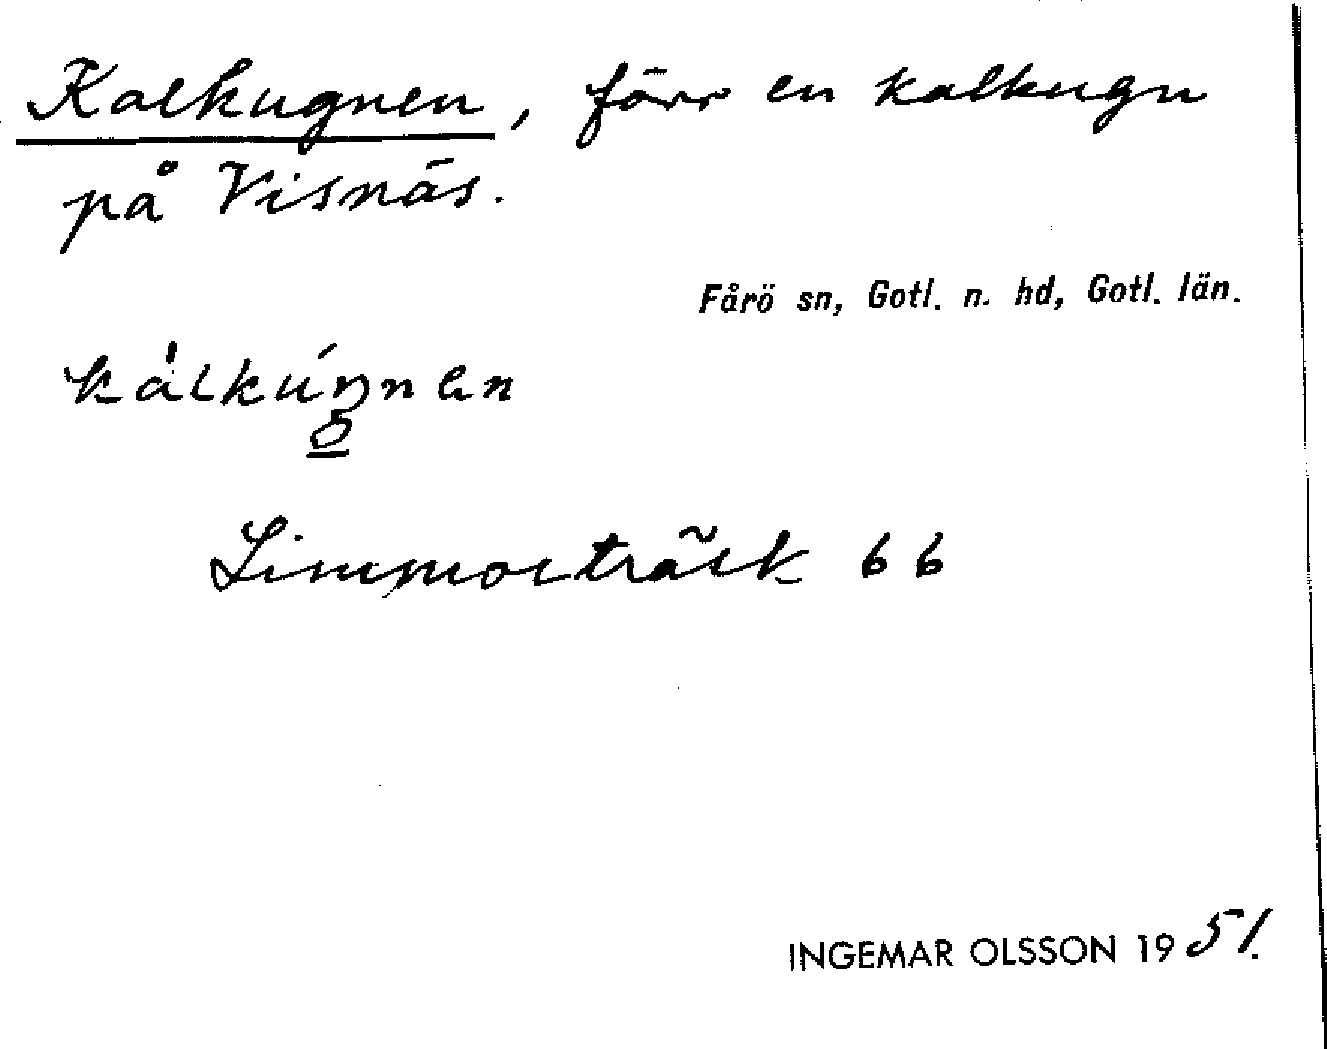 Kalkugnen, förr en kalkugn
på Visnäs.
Fårö sn, Gotl. n. hd, Gotl. län.
kálkúŋnen
Limmorträsk 66
INGEMAR OLSSON 1951.